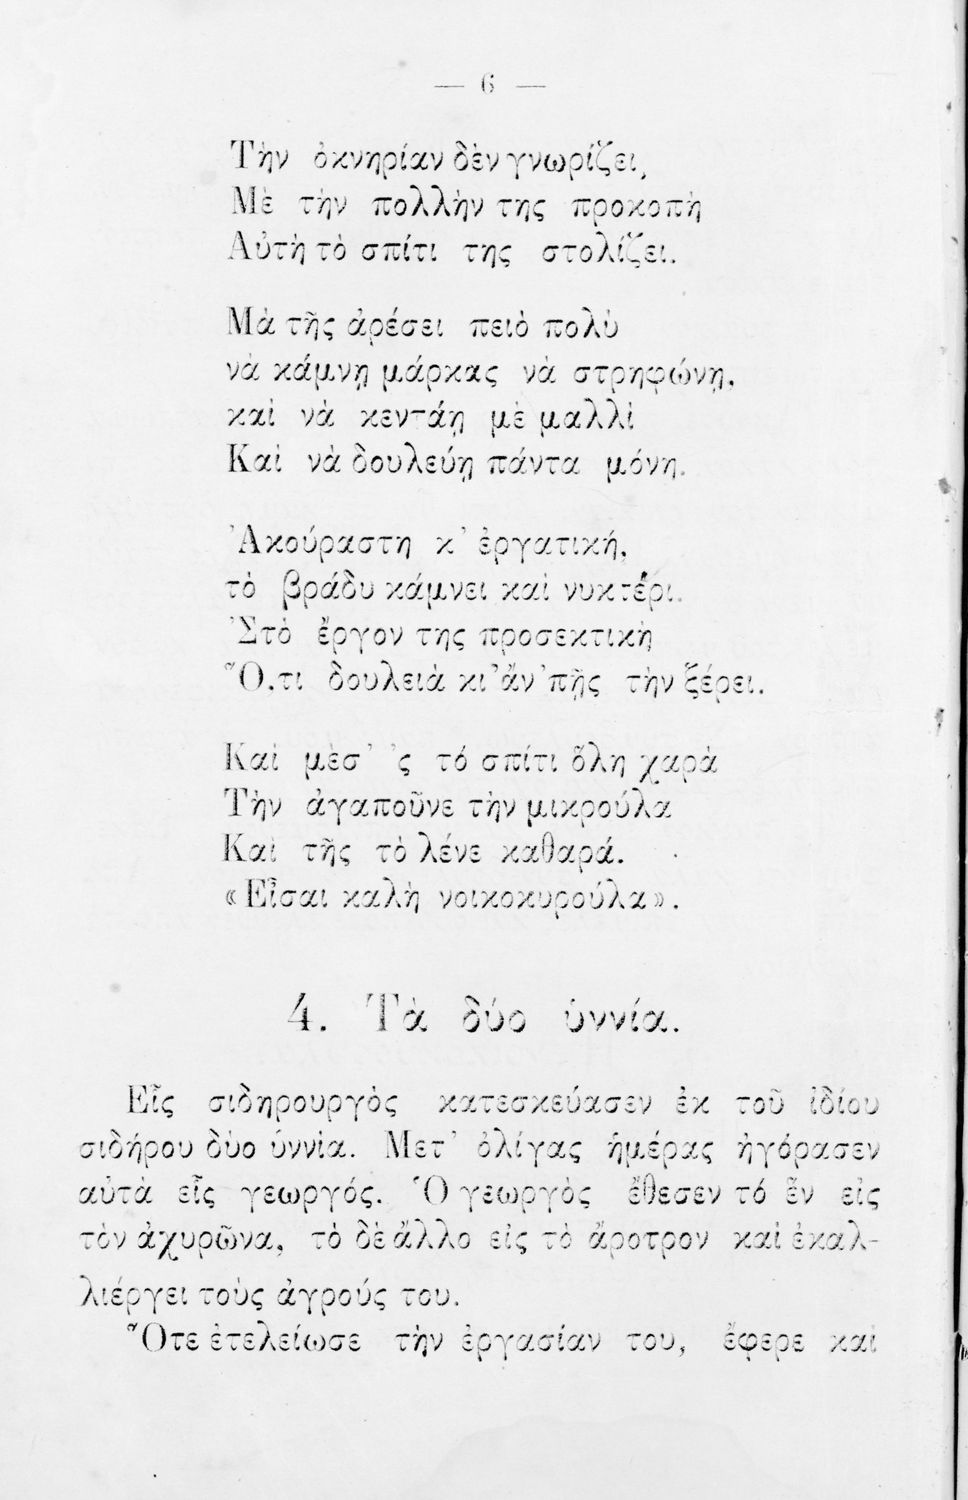 — 6 —
Τὴν ὀκνηρίαν δὲν γνωρίζει,
Μὲ τὴν πολλὴν της προκοπὴ
Αὐτὴ τὸ σπίτι της στολίζει.
Μὰ τῆς ἀρέσει πειὸ πολὺ
νὰ κάμνῃ μάρκας νὰ στρηφώνῃ,
καὶ νὰ κεντάῃ μὲ μαλλὶ
Καὶ νὰ δουλεύῃ πάντα μόνη.
Ἀκούραστη κ’ ἐργατική,
τὸ βράδυ κάμνει καὶ νυκτέρι.
Ὅτὸ ἔργον της προσεκτικὴ
Ὅ,τι δουλειὰ κι’ ἂν ’πῇς τὴν ξέρει.
Καὶ μὲσ’ ’ς τό σπίτι ὅλη χαρὰ
Τὴν ἀγαποῦνε τὴν μικρούλα
Καὶ τῆς τὸ λένε καθαρά.
«Εἶσαι καλὴ νοικοκυρούλα».
4. Τὰ δύο ὑννία.
Εἷς σιδηρουργὸς κατεσκεύασεν ἐκ τοῦ ἰδίου
σιδήρου δὺο ὑννὶα. Μετ’ ὀλίγας ἡμέρας ἠγόρασεν
αὐτὰ εἷς γεωργός. Ὁ γεωργὸς ἔθεσεν τό ἓν εἰς
τὸν ἀχυρῶνα, τὸ δὲ ἄλλο εἰς τὸ ἄροτρον καὶ ἐκαλ-
λιέργει τοὺς ἀγρούς του.
Ὅτε ἐτελείωσε τὴν ἐργασίαν του, ἔφερε καὶ